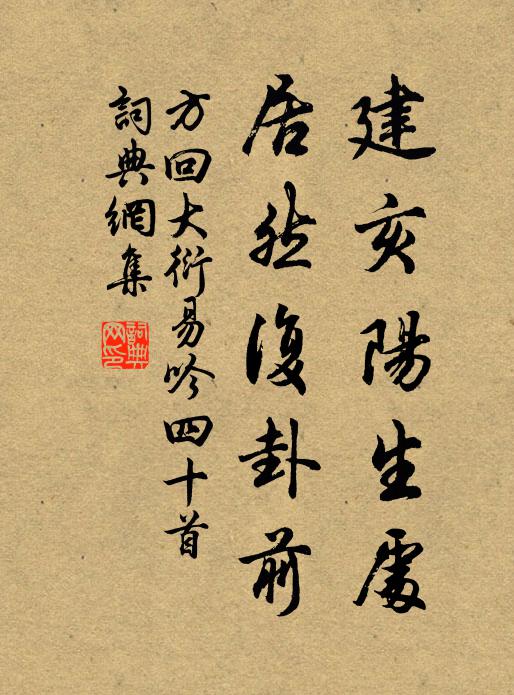 建亥陽生處
居然復卦前
方回大衍易吟四十首
詞典網集
詞典網印